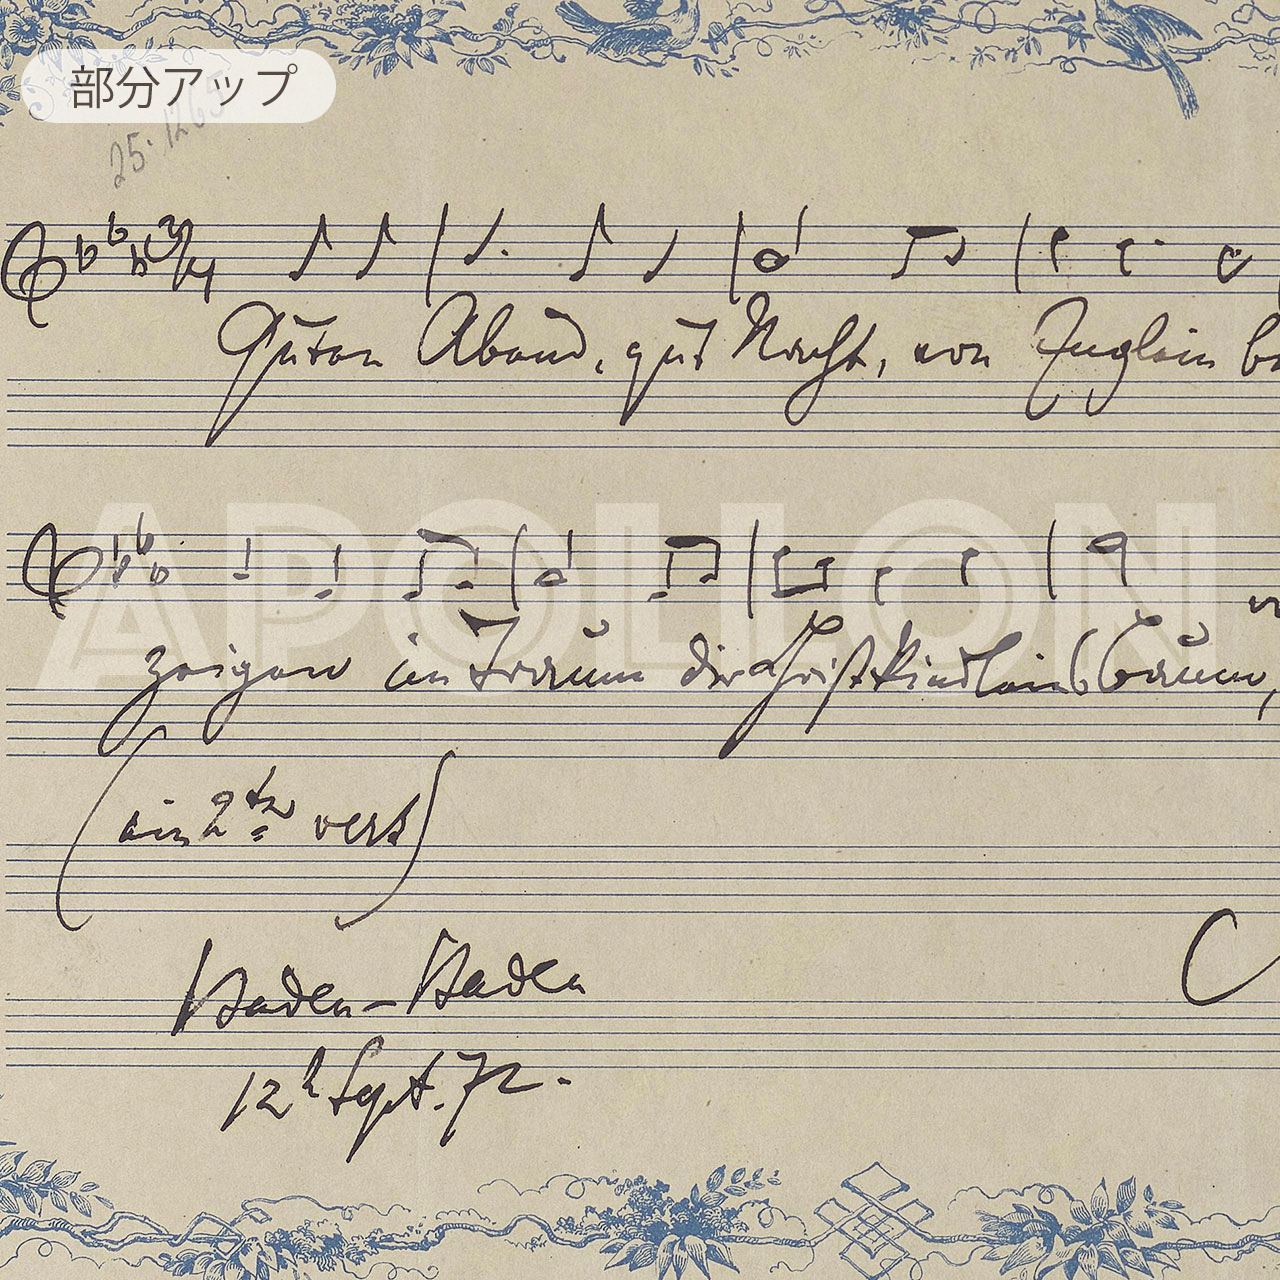 部分アップ
25.1265
3/4
Guten Abend, gut Nacht, von Englein be
APOLLON
zeigen im Traum dir Christkindleins Baum,
(ein 2tes vers)
Baden-Baden
12t Sept. 72.